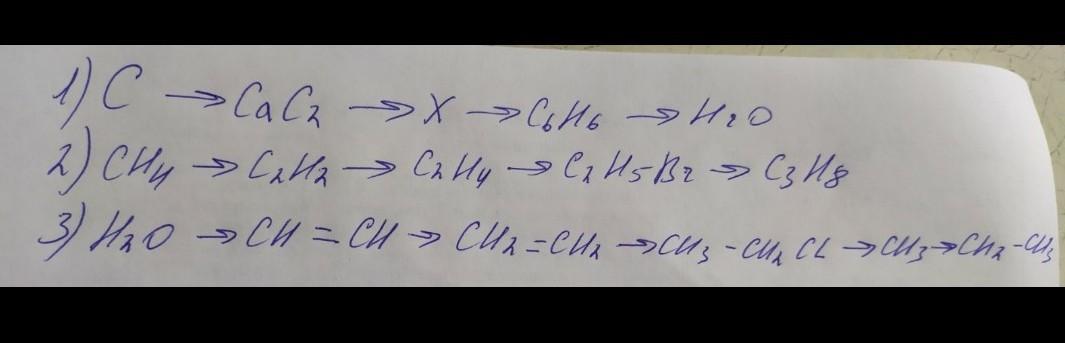 1) C → CaC₂ → X → C₆H₆ → H₂O
2) CH₄ → C₂H₂ → C₂H₄ → C₂H₅Br → C₃H₈
3) H₂O → CH = CH → CH₂ = CH₂ → CH₃ - CH₂ CL → CH₃ → CH₂ - CH₃